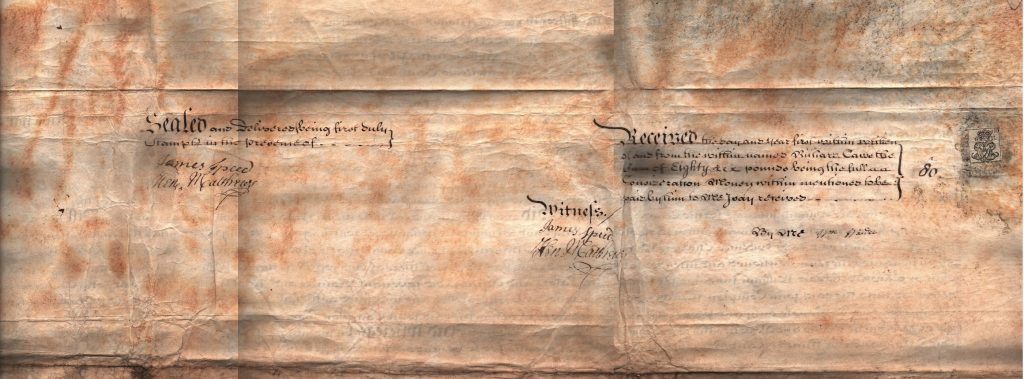 Sealed and Delivered being first duly
Stampt in the presence of
James Speed
Hen.
Received the day and year first within written
of and from the within named Richard the
Sum of Eighty six pounds being the full
Consideration Money within mentioned to be
paid by him to Me I say received
86
Witness
James Speed
Hen.
By Me